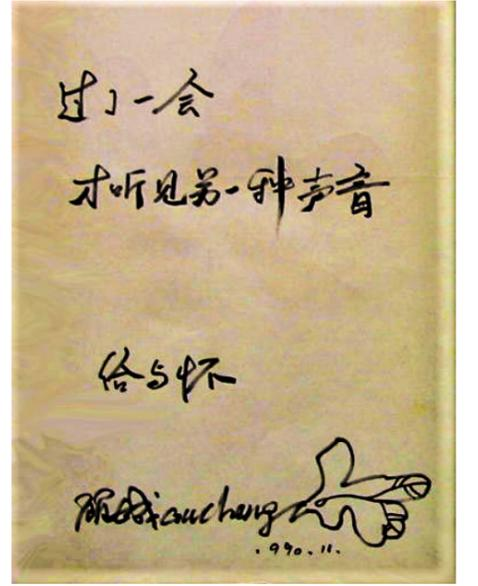 过了一会
才听见另一种声音
给与怀
顾城 Gucheng
.990.11.